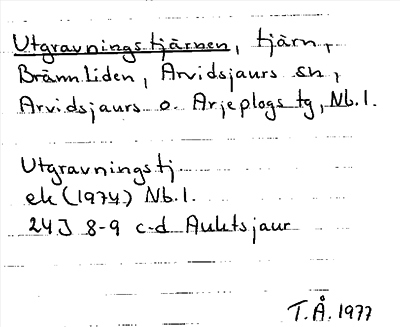 Utgravningstjärnen, tjärn,
Brännliden, Arvidsjaurs sn,
Arvidsjaurs o. Arjeplogs tg, Nb.l.
Utgravningstj.
ek (1974) Nb.l.
24J 8-9 c-d Auktsjaur
T.Å. 1977